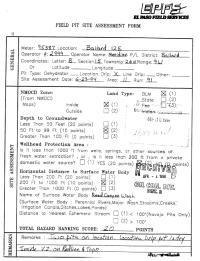 EPFS
EL PASO FIELD SERVICES
FIELD PIT SITE ASSESSMENT FORM
GENERAL
Meter: 95387 Location: Ballard 12E
Operator #: 2999 Operator Name: Meridian P/L District: Ballard
Coordinates: Letter: Section Township: 26 Range: 9
Or Latitude Longitude
Pit Type: Dehydrator Location Drip: X Line Drip: Other:
Site Assessment Date: 6-23-94 Area: Run:
SITE ASSESSMENT
NMOCD Zone: Land Type: BLM (1)
(From NMOCD State (2)
Maps) Inside (1) Fee (3)
Outside (2) Indian
Depth to Groundwater
Less Than 50 Feet (20 points) (1)
50 Ft to 99 Ft (10 points) (2)
Greater Than 100 Ft (0 points) (3)
Wellhead Protection Area :
Is it less than 1000 ft from wells, springs, or other sources of
fresh water extraction? , or , Is it less than 200 ft from a private
domestic water source? (1) YES (20 points) (2) NO (0 points)
Horizontal Distance to Surface Water Body
Less Than 200 Ft (20 points) (1)
200 Ft to 1000 Ft (10 points) (2)
Greater Than 1000 Ft (0 points) (3)
Name of Surface Water Body
(Surface Water Body : Perennial Rivers,Major Wash,Streams,Creeks,
Irrigation Canals,Ditches,Lakes,Ponds)
Distance to Nearest Ephemeral Stream (1) < 100'(Navajo Pits Only)
(2) > 100'
TOTAL HAZARD RANKING SCORE: 20 POINTS
REMARKS
Remarks : Two pits on location. Location drip pit is dry
Inside V.Z. on Redline & Topo.
RECEIVED
OIL CON. DIV.
DIST. 3